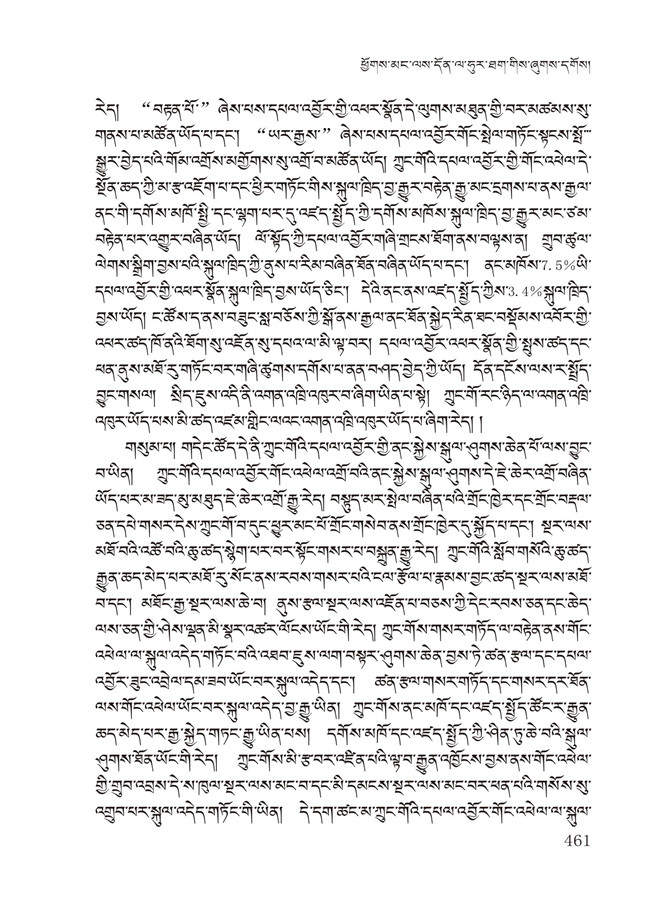 ཕྱོགས་མང་ལས་དོན་ལ་ཧུར་ཐག་གིས་ཞུགས་དགོས།
རེད། “བརྟན་པོ” ཞེས་པས་དཔལ་འབྱོར་གྱི་འཕར་སྣོན་དེ་ལུགས་མཐུན་གྱི་བར་མཚམས་སུ་
གནས་པ་མཚོན་ཡོད་པ་དང་། “ཡར་རྒྱས” ཞེས་པས་དཔལ་འབྱོར་གོང་སྤེལ་གཏོང་སྟངས་སྤོ་
སྒྱུར་བྱེད་པའི་གོམ་འགྲོས་མགྱོགས་སུ་འགྲོ་བ་མཚོན་ཡོད། ཀྲུང་གོའི་དཔལ་འབྱོར་གྱི་གོང་འཕེལ་དེ་
སྔོན་ཆད་ཀྱི་མ་རྩ་འཇོག་པ་དང་ཕྱིར་གཏོང་གིས་སྐུལ་ཁྲིད་བྱ་རྒྱུར་བརྟེན་རྒྱུ་མང་དྲགས་པ་ནས་རྒྱལ་
ནང་གི་དགོས་མཁོ་སྤྱི་དང་ལྷག་པར་དུ་འཛད་སྤྱོད་ཀྱི་དགོས་མཁོས་སྐུལ་ཁྲིད་བྱ་རྒྱུར་མང་ཙམ་
བརྟེན་པར་འགྱུར་བཞིན་ཡོད། ལོ་སྟོད་ཀྱི་དཔལ་འབྱོར་གཞི་གྲངས་ཐོག་ནས་བལྟས་ན། གྲུབ་ཚུལ་
ལེགས་སྒྲིག་བྱས་པའི་སྐུལ་ཁྲིད་ཀྱི་ནུས་པ་རིམ་བཞིན་ཐོན་བཞིན་ཡོད་པ་དང་། ནང་མཁོས་7.5%ཡི་
དཔལ་འབྱོར་གྱི་འཕར་སྣོན་སྐུལ་ཁྲིད་བྱས་ཡོད་ཅིང་། དེའི་ནང་ནས་འཛད་སྤྱོད་ཀྱིས་3.4%སྐུལ་ཁྲིད་
བྱས་ཡོད། ང་ཚོས་ད་ནས་བཟུང་སླ་བཅོས་ཀྱི་སྒོ་ནས་རྒྱལ་ནང་ཐོན་སྐྱེད་རིན་ཐང་བསྡོམས་འབོར་གྱི་
འཕར་ཚད་ཁོ་ནའི་ཐོག་སུ་འཇོན་སུ་དཔའ་ལ་མི་ལྟ་བར། དཔལ་འབྱོར་འཕར་སྣོན་གྱི་སྤུས་ཚད་དང་
ཕན་ནུས་མཐོ་རུ་གཏོང་བར་གཞི་ཚུགས་དགོས་པ་ནན་བཤད་བྱེད་ཀྱི་ཡོད། དོན་དངོས་ལས་ར་སྤྲོད་
བྱུང་གསལ། སྲིད་ཇུས་འདི་ནི་འགན་འཁྲི་འཁུར་བ་ཞིག་ཡིན་པ་སྟེ། ཀྲུང་གོ་རང་ཉིད་ལ་འགན་འཁྲི་
འཁུར་ཡོད་པས་མི་ཚད་འཛམ་གླིང་ལའང་འགན་འཁྲི་འཁུར་ཡོད་པ་ཞིག་རེད། །
གསུམ་པ། གདེང་ཚོད་དེ་ནི་ཀྲུང་གོའི་དཔལ་འབྱོར་གྱི་ནང་སྐྱེས་སྐུལ་ཤུགས་ཆེན་པོ་ལས་བྱུང་
བ་ཡིན། ཀྲུང་གོའི་དཔལ་འབྱོར་གོང་འཕེལ་འགྲོ་བའི་ནང་སྐྱེས་སྐུལ་ཤུགས་དེ་ཇེ་ཆེར་འགྲོ་བཞིན་
ཡོད་པར་མ་ཟད་མུ་མཐུད་ཇེ་ཆེར་འགྲོ་རྒྱུ་རེད། བསྟུད་མར་སྤེལ་བཞིན་པའི་གྲོང་ཁྱེར་དང་གྲོང་བརྡལ་
ཅན་དཔེ་གསར་དེས་ཀྲུང་གོ་བ་དུང་ཕྱུར་མང་པོ་གྲོང་གསེབ་ནས་གྲོང་ཁྱེར་དུ་སྐྱོད་པ་དང་། སྔར་ལས་
མཐོ་བའི་འཚོ་བའི་ཆུ་ཚད་སྙེག་པར་བར་སྟོང་གསར་པ་བསྐྲུན་རྒྱུ་རེད། ཀྲུང་གོའི་སློབ་གསོའི་ཆུ་ཚད་
རྒྱུན་ཆད་མེད་པར་མཐོ་རུ་སོང་ནས་རབས་གསར་པའི་ངལ་རྩོལ་པ་རྣམས་བྱང་ཚད་སྔར་ལས་མཐོ་
བ་དང་། མཐོང་རྒྱ་སྔར་ལས་ཆེ་བ། ནུས་རྩལ་སྔར་ལས་འཛོན་པ་བཅས་ཀྱི་དེང་རབས་ཅན་དང་ཆེད་
ལས་ཅན་གྱི་ཤེས་ལྡན་མི་སྣར་འཚར་ལོངས་ཡོང་གི་རེད། ཀྲུང་གོས་གསར་གཏོད་ལ་བརྟེན་ནས་གོང་
འཕེལ་ལ་སྐུལ་འདེད་གཏོང་བའི་འཐབ་ཇུས་ལག་བསྟར་ཤུགས་ཆེན་བྱས་ཏེ་ཚན་རྩལ་དང་དཔལ་
འབྱོར་ཟུང་འབྲེལ་དམ་ཟབ་ཡོང་བར་སྐུལ་འདེད་དང་། ཚན་རྩལ་གསར་གཏོད་དང་གསར་དར་ཐོན་
ལས་གོང་འཕེལ་ཡོང་བར་སྐུལ་འདེད་བྱ་རྒྱུ་ཡིན། ཀྲུང་གོས་ནང་མཁོ་དང་འཛད་སྤྱོད་ཚོང་ར་རྒྱུན་
ཆད་མེད་པར་རྒྱ་སྐྱེད་གཏང་རྒྱུ་ཡིན་པས། དགོས་མཁོ་དང་འཛད་སྤྱོད་ཀྱི་ཤིན་ཏུ་ཆེ་བའི་སྐུལ་
ཤུགས་ཐོན་ཡོང་གི་རེད། ཀྲུང་གོས་མི་རྩ་བར་འཛིན་པའི་ལྟ་བ་རྒྱུན་འཁྱོངས་བྱས་ནས་གོང་འཕེལ་
གྱི་གྲུབ་འབྲས་དེ་ས་ཁུལ་སྔར་ལས་མང་བ་དང་མི་དམངས་སྔར་ལས་མང་བར་ཕན་པའི་གསོས་སུ་
འགྲུབ་པར་སྐུལ་འདེད་གཏོང་གི་ཡིན། དེ་དག་ཚང་མ་ཀྲུང་གོའི་དཔལ་འབྱོར་གོང་འཕེལ་ལ་སྐུལ་
461